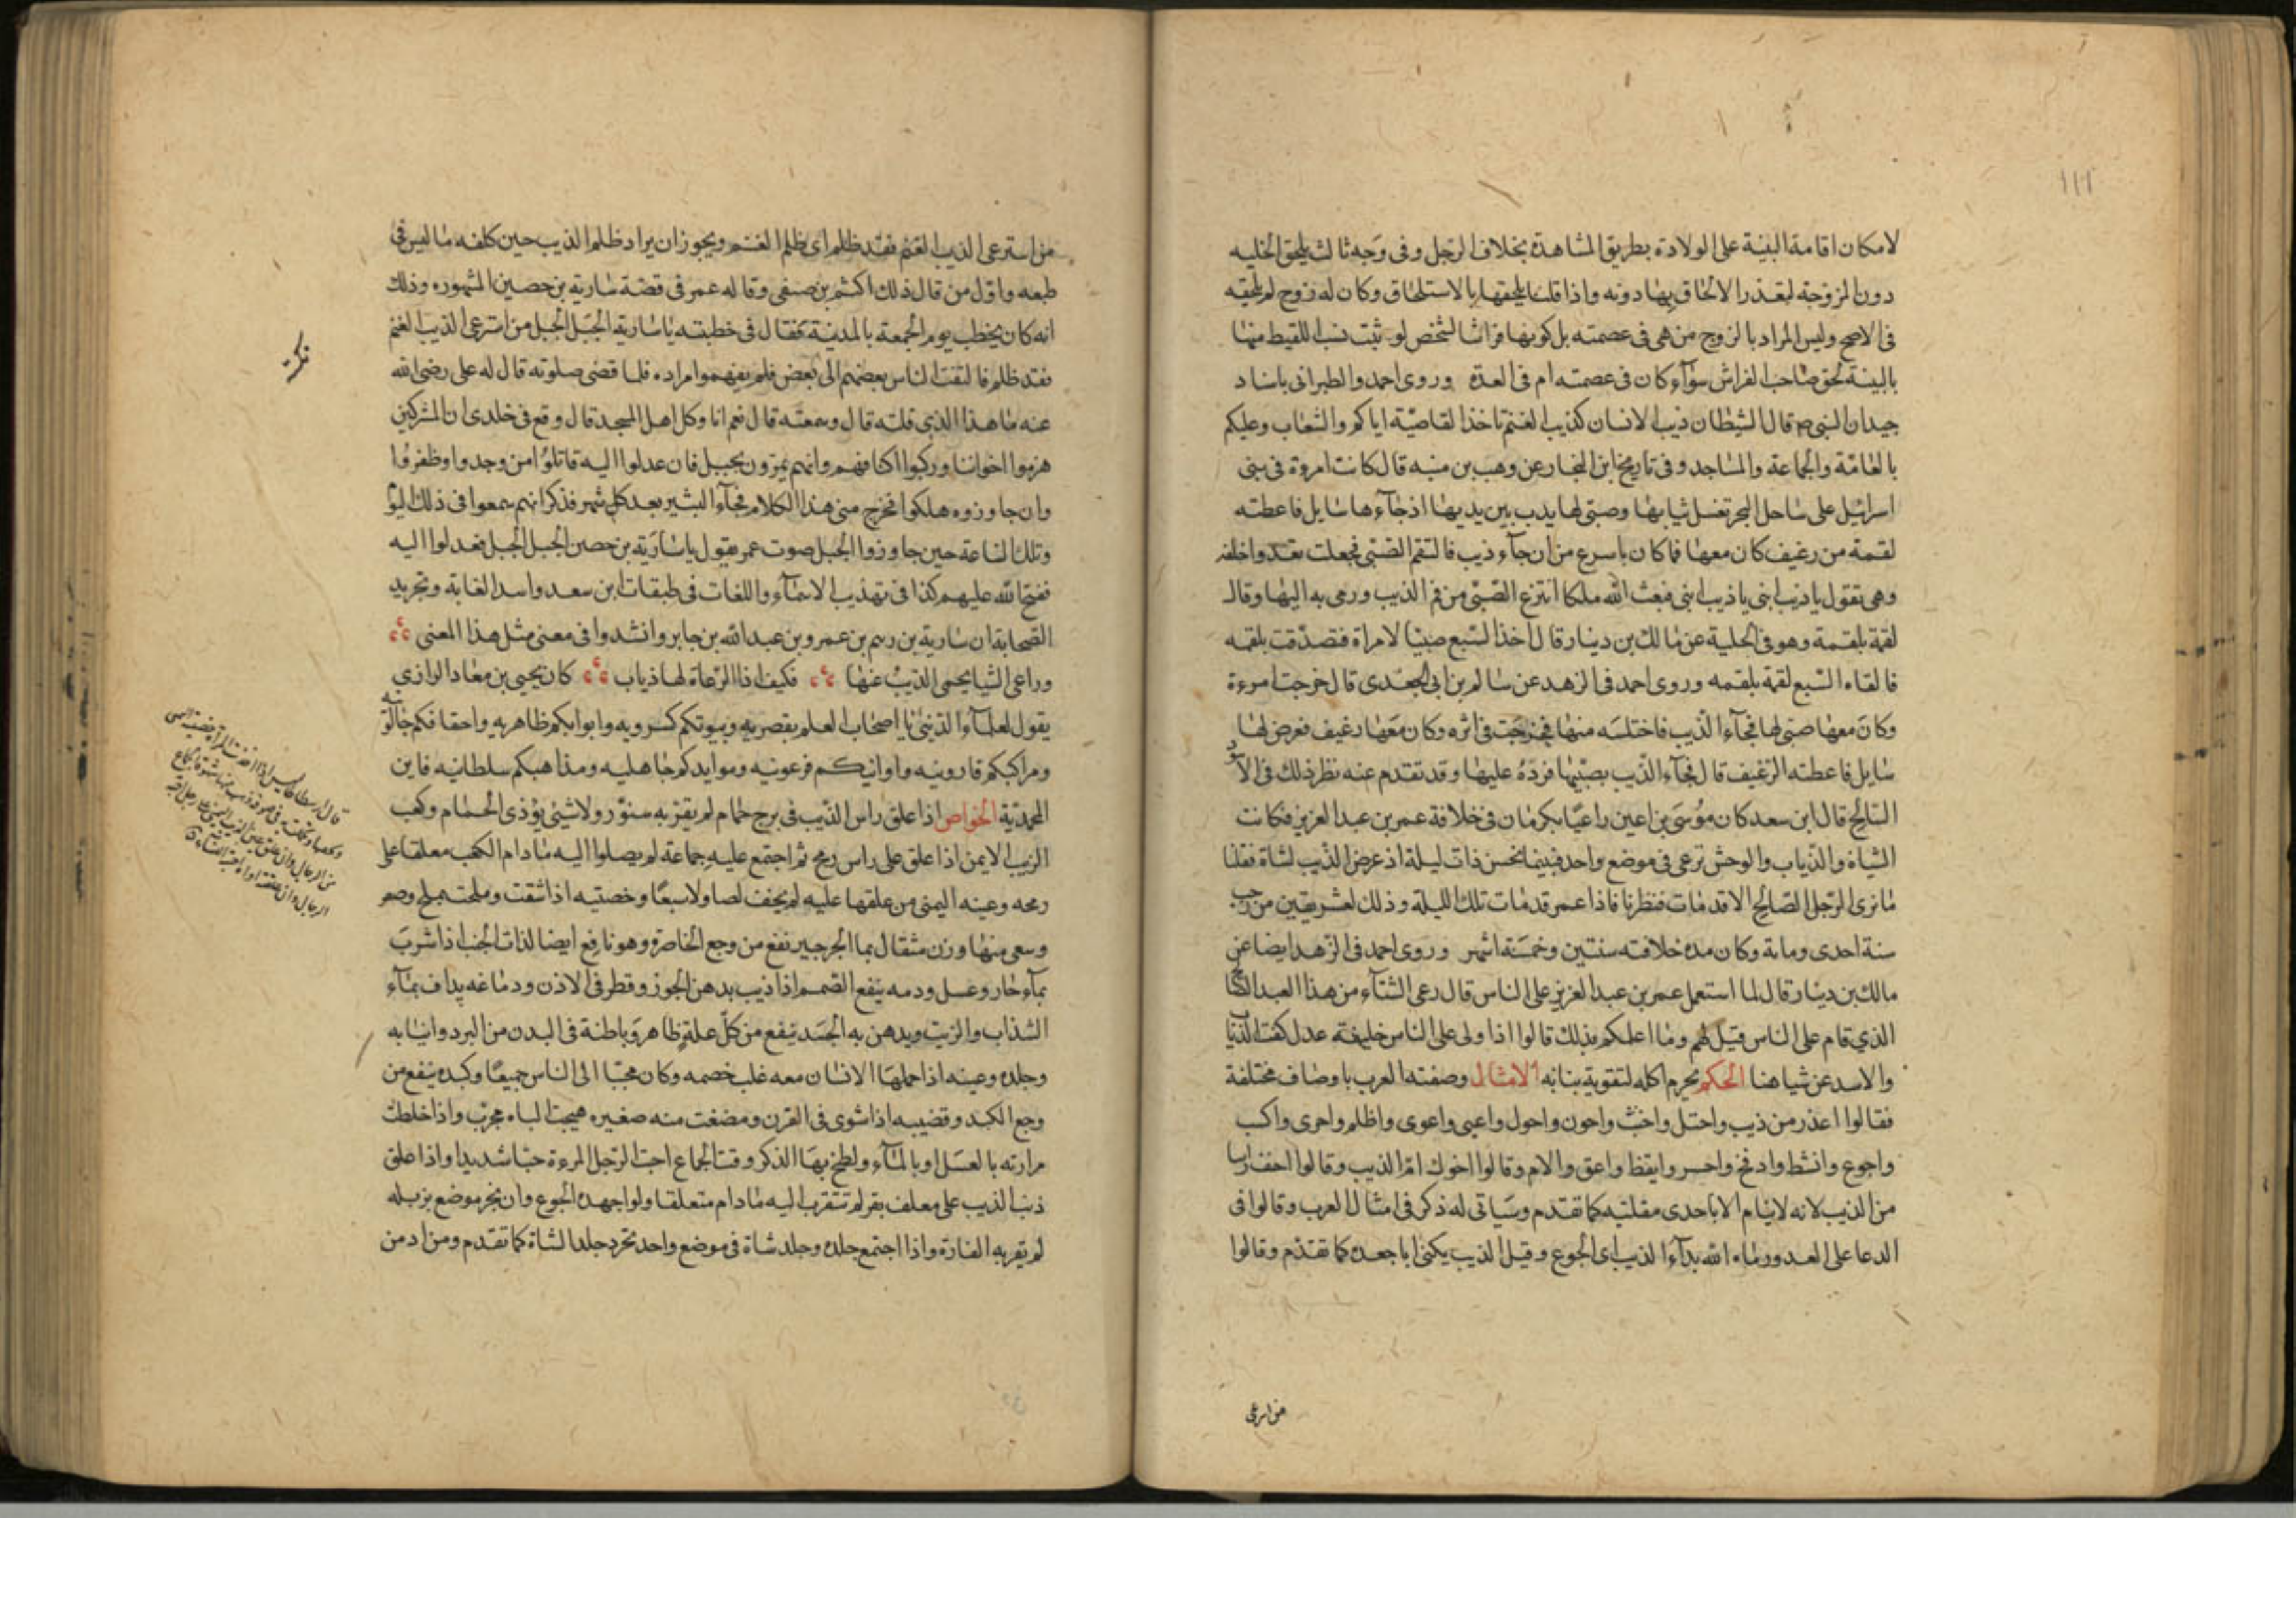 ١١١
لامكان اقامة البينة على الولادة بطريق المشاهدة بخلاف الرجل وفى وجه ثالث يلحق الخليه
دون المزوجة لتعذر الالحاق بها دونه واذا قلنا يلحقها بالاستلحاق وكان له زوج لم يلحقه
فى الاصح وليس المراد بالزوج من هى فى عصمته بل كونها فراشا لشخص لو ثبت نسب اللقيط منها
بالبينة لحق صاحب الفراش سوآء كان فى عصمته ام فى العدة وروى احمد والطبرانى باسناد
جيد ان النبى ص قال الشيطان ذيب الانسان كذيب الغنم تاخذ القاصية اياكم والشعاب وعليكم
بالعامة والجماعة والمساجد وفى تاريخ ابن النجار عن وهب بن منبه قال كانت امروة فى بنى
اسرائيل على ساحل البحر تغسل ثيابها وصبى لها يدب بين يديها اذ جآءها سايل فاعطته
لقمة من رغيف كان معها فما كان باسرع من ان جآء ذيب فالتقم الصبى فجعلت تعدوا خلفه
وهى تقول ياذيب ابنى ياذيب ابنى فبعث الله ملكا انتزع الصبى من فم الذيب ورمى به اليها وقال
لقمة بلقمة وهو فى الحلية عن مالك بن دينار قال اخذ السبع صبيا لامراة فتصدقت بلقمه
فالقاه السبع لقمة بلقمه وروى احمد فى الزهد عن سالم بن ابى الجعدى قال خرجت امروة
وكان معها صبى لها فجآء الذيب فاختلسه منها فخرجت فى اثره وكان معها رغيف فعرض لها
سايل فاعطته الرغيف قال فجآء الذيب بصبيها فرده عليها وقد تقدم عنه نظر ذلك فى الاسود
السالخ قال ابن سعد كان موسى بن اعين راعيا بكرمان فى خلافة عمر بن عبد العزيز فكانت
الشياة والذياب والوحش ترعى فى موضع واحد فبينما نحسن ذات ليلة اذ عرض الذيب لشاة فقلنا
ما نرى الرجل الصالح الا قد مات فنظرنا فاذا عمر قد مات تلك الليلة وذلك لعشر بقين من رجب
سنة احدى وماية وكان مده خلافته سنتين وخمسة اشهر وروى احمد فى الزهد ايضا عن
مالك بن دينار قال لما استعمل عمر بن عبد العزيز على الناس قال رعى الشآء من هذا العبد الصالح
الذي قام على الناس قيل لهم وما اعلمكم بذلك قالوا اذا ولى على الناس خليفة عدل كفت الذياب
والاسد عن شياهنا الحكم يحرم اكله لتقوية بنابه الامثال وصفته العرب باوصاف مختلفة
فقالوا اغدر من ذيب واختل واخبث واخون واحول واعبى واعوى واظلم واجرى واكسب
واجوع وانشط وادفح واجسر وايقظ واعق والام وقالوا اخوك ام الذيب وقالوا اخف راسا
من الذيب لانه لاينام الا باحدى مقلتيه كما تقدم وسياتى له ذكر فى امثال العرب وقالوا فى
الدعا على العدو رماه الله بدآء الذيب اى الجوع وقيل الذيب يكنى ابا جعده كما تقدم وقالوا
من استرعى
من استرعى الذيب الغنم فقد ظلم اى ظلم الغنم ويجوز ان يراد ظلم الذيب حين كلفه ما ليس فى
طبعه واول من قال ذلك اكثم بن صيفى وقاله عمر فى قصة سارية بن حصين المشهوره وذلك
انه كان يخطب يوم الجمعة بالمدينة فقال فى خطبته ياسارية الجبل الجبل من استرعى الذيب الغنم
فقد ظلم فالتفت الناس بعضهم الى بعض فلم يفهموا مراده فلما قضى صلوته قال له على رضى الله
عنه ما هذا الذي قلته قال وسمعته قال نعم انا وكل اهل المسجد قال وقع فى خلدى ان المشركين
هزموا اخواننا وركبوا اكتافهم وانهم يمرون بجبل فان عدلوا اليه قاتلوا من وجدوا وظفروا
وان جاوزوه هلكوا فخرج منى هذا الكلام فجآء البشير بعد كل شهر فذكر انهم سمعوا فى ذلك اليوم
وتلك الساعة حين جاوزوا الجبل صوت عمر يقول ياسارية بن حصن الجبل الجبل فعدلوا اليه
ففتح الله عليهم كذا فى تهذيب الاسمآء واللغات فى طبقات ابن سعد واسد الغابة وتجريد
الصحابة ان سارية بن رسم بن عمرو بن عبد الله بن جابر وانشدوا فى معنى مثل هذا المعنى
وراعى الشيا يحمى الذيب عنها فكيف اذا الرعاة لها ذياب كان يحيى بن معاد الرازي
يقول لعلمآء الدنيى يا اصحاب العلم بقصريه وبيوتكم كسرويه وابوابكم ظاهريه واخفافكم جالوتيه
ومراكبكم قارونيه واوانيكم فرعونيه وموايدكم جاهليه ومذاهبكم سلطانيه فاين
المحمدية الخواص اذا علق راس الذيب فى برج حمام لم يقربه سنور ولا شيئ يؤذى الحمام وكعب
الذيب الايمن اذا علق على راس رمح ثم اجتمع عليه جماعة لم يصلوا اليه مادام الكعب معلقا على
رمحه وعينه اليمنى من علقها عليه لم يخف لصا ولاسبعا وخصتيه اذا شقت وملحت بملح وصعر
وسعى منها وزن مثقال بما الجرجير نفع من وجع الخاصرة وهو نافع ايضا لذات الجنب اذا شرب
بمآء حار وعسل ودمه ينفع الصمم اذا ذيب بدهن الجوز وقطر فى الاذن ودماغه يداف بمآء
الشذاب والزيت ويدهن به الجسد ينفع من كل علة ظاهر وباطنة فى البدن من البرد وانيابه
وجلده وعينه اذا حملها الانسان معه غلب خصمه وكان محببا الى الناس جميعا وكبده ينفع من
وجع الكبد وقضيبه اذا شوى فى الفرن ومضغت منه صغيره هيجت الباه مجرب واذا خلطت
مرارته بالعسل او بالمآء ولطخ بها الذكر وقت الجماع احبت الرجل المروة حبا شديدا واذا علق
ذنب الذيب على معلف بقر لم تتقرب اليه مادام متعلقا ولو اجهده الجوع وان بخر موضع بزبله
لم يقربه الفارة واذا اجتمع جلده وجلد شاة فى موضع واحد تجرد جلد الشاة كما تقدم ومن ادمن